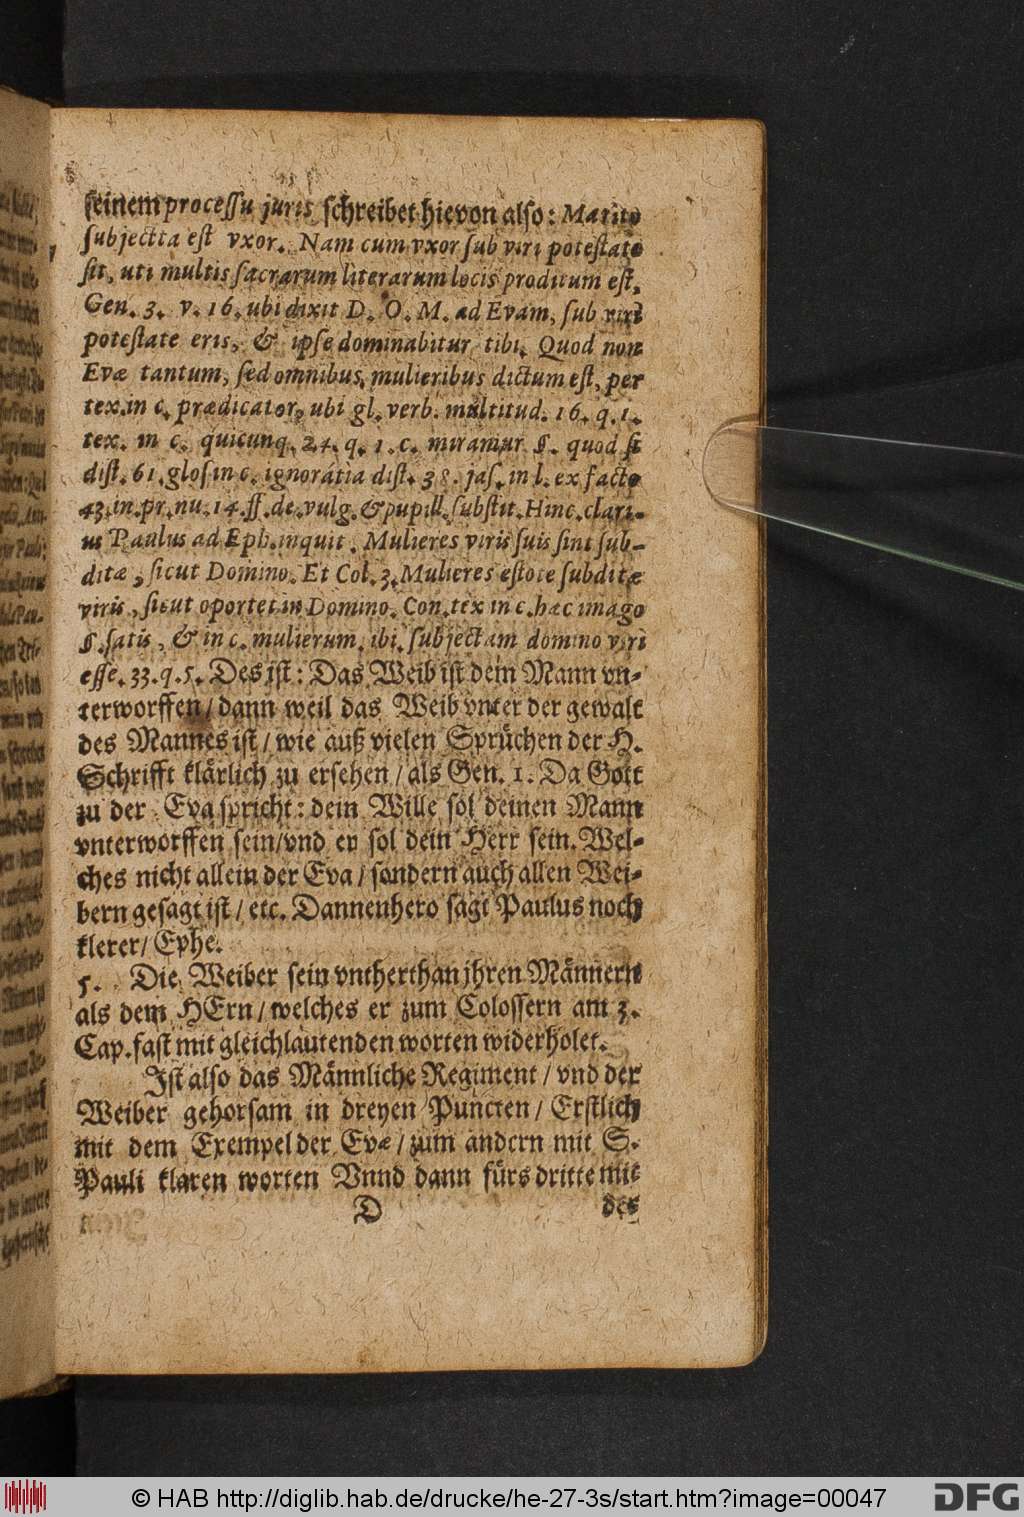 seinem processu juris schreibet hievon also: Marito
subjectta est vxor. Nam cum vxor sub viri potestate
sit, uti multis sacrarum literarum locis proditum est,
Gen. 3. v. 16. ubi dixit D. O. M. ad Evam, sub viri
potestate eris, & ipse dominabitur tibi. Quod non
Evæ tantum, sed omnibus mulieribus dictum est, per
tex. in c. prædicator, ubi gl. verb. multitud. 16. q. 1.
tex. in c. quicunq, 24. q. 1. c. miramur §. quod si
dist. 61. glos in c. ignorátia dist. 38. jas. in l. ex facto
43. in. pr. nu. 14. ff. de. vulg. & pupill. substit. Hinc. clari-
us Paulus ad Eph. inquit. Mulieres viris suis sint sub-
ditæ, sicut Domino. Et Col. 3. Mulieres estote subditæ
viris, sicut oportet in Domino. Con. tex in c. hæc imago
§. satis, & in c. mulierum, ibi, subjectam domino viri
esse. 33. q. 5. Des ist: Das Weib ist dem Mann vn-
terworffen/ dann weil das Weib vnter der gewalt
des Mannes ist/ wie auß vielen Sprüchen der H.
Schrifft klärlich zu ersehen/ als Gen. 1. Da Gott
zu der Eva spricht: dein Wille sol deinen Mann
vnterworffen sein/ vnd er sol dein Herr sein. Wel-
ches nicht allein der Eva/ sondern auch allen Wei-
bern gesagt ist/ etc. Dannenhero sagt Paulus noch
klerer/ Ephe.
5. Die Weiber sein vntherthan jhren Männern
als dem HErn/ welches er zum Colossern am 3.
Cap. fast mit gleichlautenden worten widerholet.
Ist also das Männliche Regiment/ vnd der
Weiber gehorsam in dreyen Puncten/ Erstlich
mit dem Exempel der Evæ/ zum andern mit S.
Pauli klaren worten Vnnd dann fürs dritte mit
D des
© HAB http://diglib.hab.de/drucke/he-27-3s/start.htm?image=00047
DFG